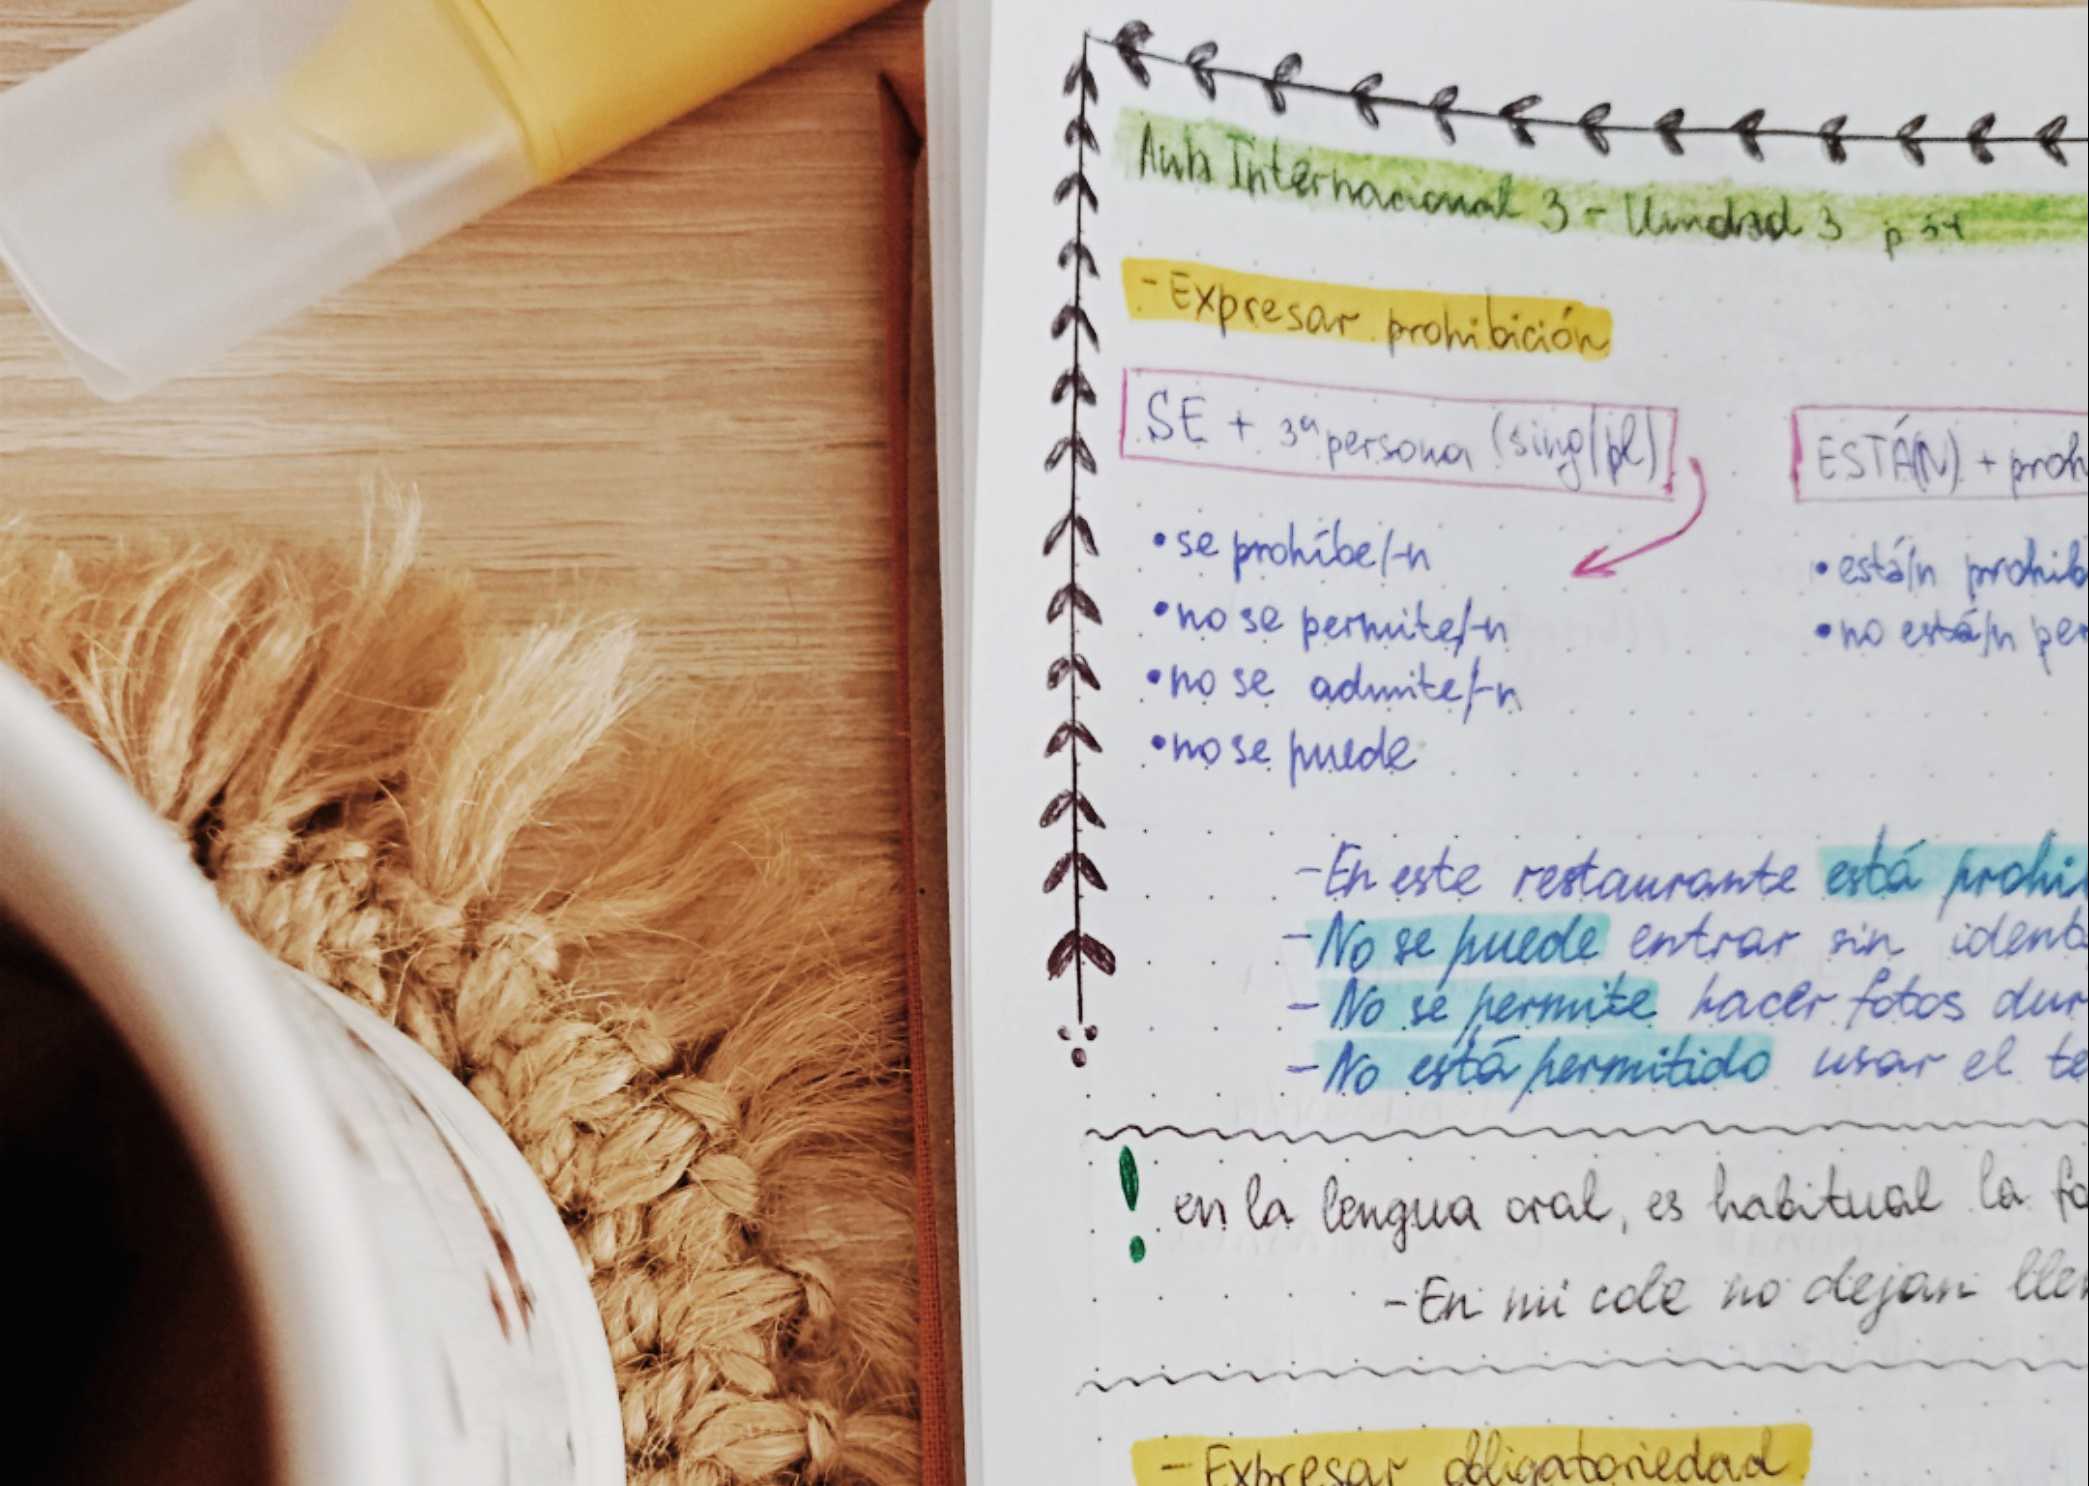 Aula Internacional 3 - Unidad 3 p 54
- Expresar prohibición
SE + 3ª persona (sing/pl)
ESTÁ(N) + proh
• se prohíbe/-n
• no se permite/-n
• no se admite/-n
• no se puede
• está/n prohib
• no está/n per
- En este restaurante está prohi
- No se puede entrar sin ident
- No se permite hacer fotos dur
- No está permitido usar el te
! en la lengua oral, es habitual la fo
- En mi cole no dejan lle
- Expresar obligatoriedad